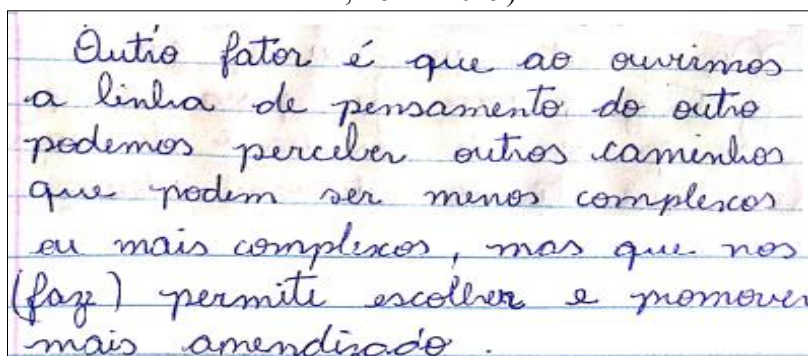 Outro fator é que ao ouvirmos
a linha de pensamento do outro
podemos perceber outros caminhos
que podem ser menos complexos
ou mais complexos, mas que nos
(faze) permite escolher e promover
mais aprendizado.